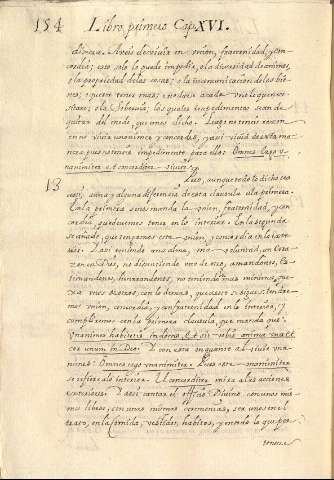 154 Libro primero Cap. XVI.
dineza. Aveis de vivir en union, fraternidad, y con-
cordia; esto solo lo puede impedir, o la diversidad de animos,
o la propriedad de las cosas; o la incomunicacion de los bie-
nes;
o la soberuia, los quales impedimentos se an de
quitar del modo, que emos dicho. Luego
en uno vivir unanimes y concordes, y assi vivid de esta ma-
nera, pues no teneis impedimento para ello: Omnes ergo
unanimiter et concorditer vivite.
13 Pero, aunque todo lo dicho sea
assi; ai una y alguna diferencia de esta clausula a la primera.
En la primera se nos manda la union, fraternidad, y con-
cordia que devemos tener en lo interior. En la segunda
se añade, que tengamos union, y concordia en lo exte-
rior. I assi teniendo una alma, una voluntad, un Cora-
zon en Dios, no disgustando uno de otro, amandonos, Es-
timandonos, honrandonos, no teniendo mas minimo, que
mas deseos, con lo demas, que a esto se sigue: tendre-
mos union, concordia, y conformidad en lo interior, y
cumpliremos con la primera clausula, que manda que:
unanimes habitetis in domo, et sit vobis anima una et
cor unum in Deo. I con esta en quanto al vivir una-
nimes: Omnes ergo unanimiter. Pues este unanimiter
se refiere a lo interior. El concorditer mira a las acciones
exteriores. I assi cantar el officio Divino con unos mis-
mos libros, con unas mismas ceremonias, ser unos en el
trato, en la comida, vestidos, habitos, y en todo lo que per-
tenece